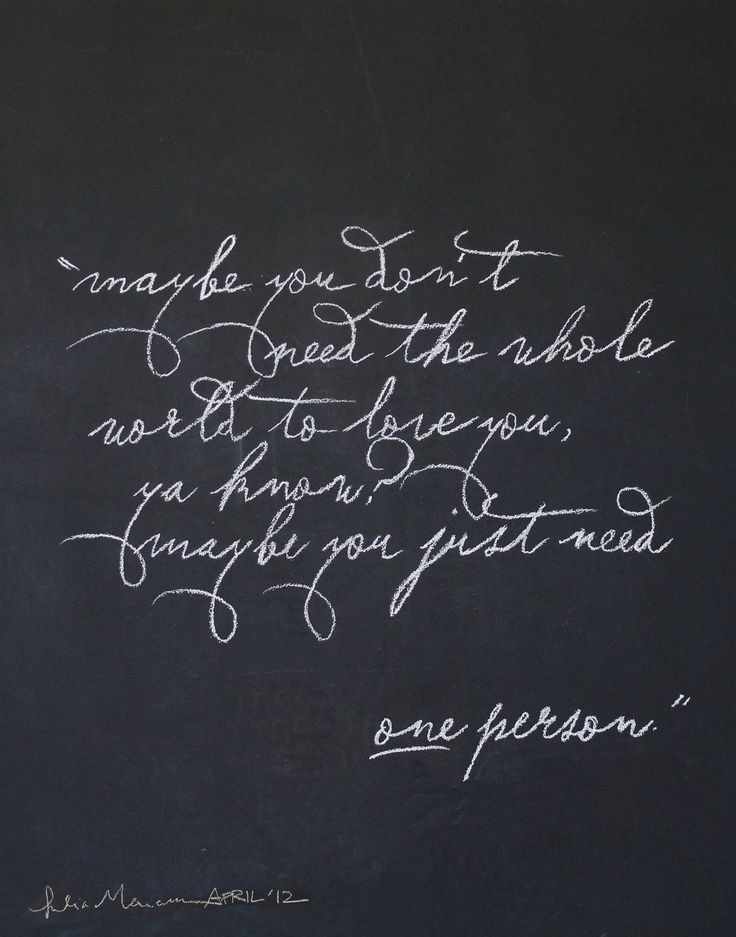 "maybe you don't
need the whole
world to love you,
ya know?
maybe you just need
one person."
Julia APRIL '12